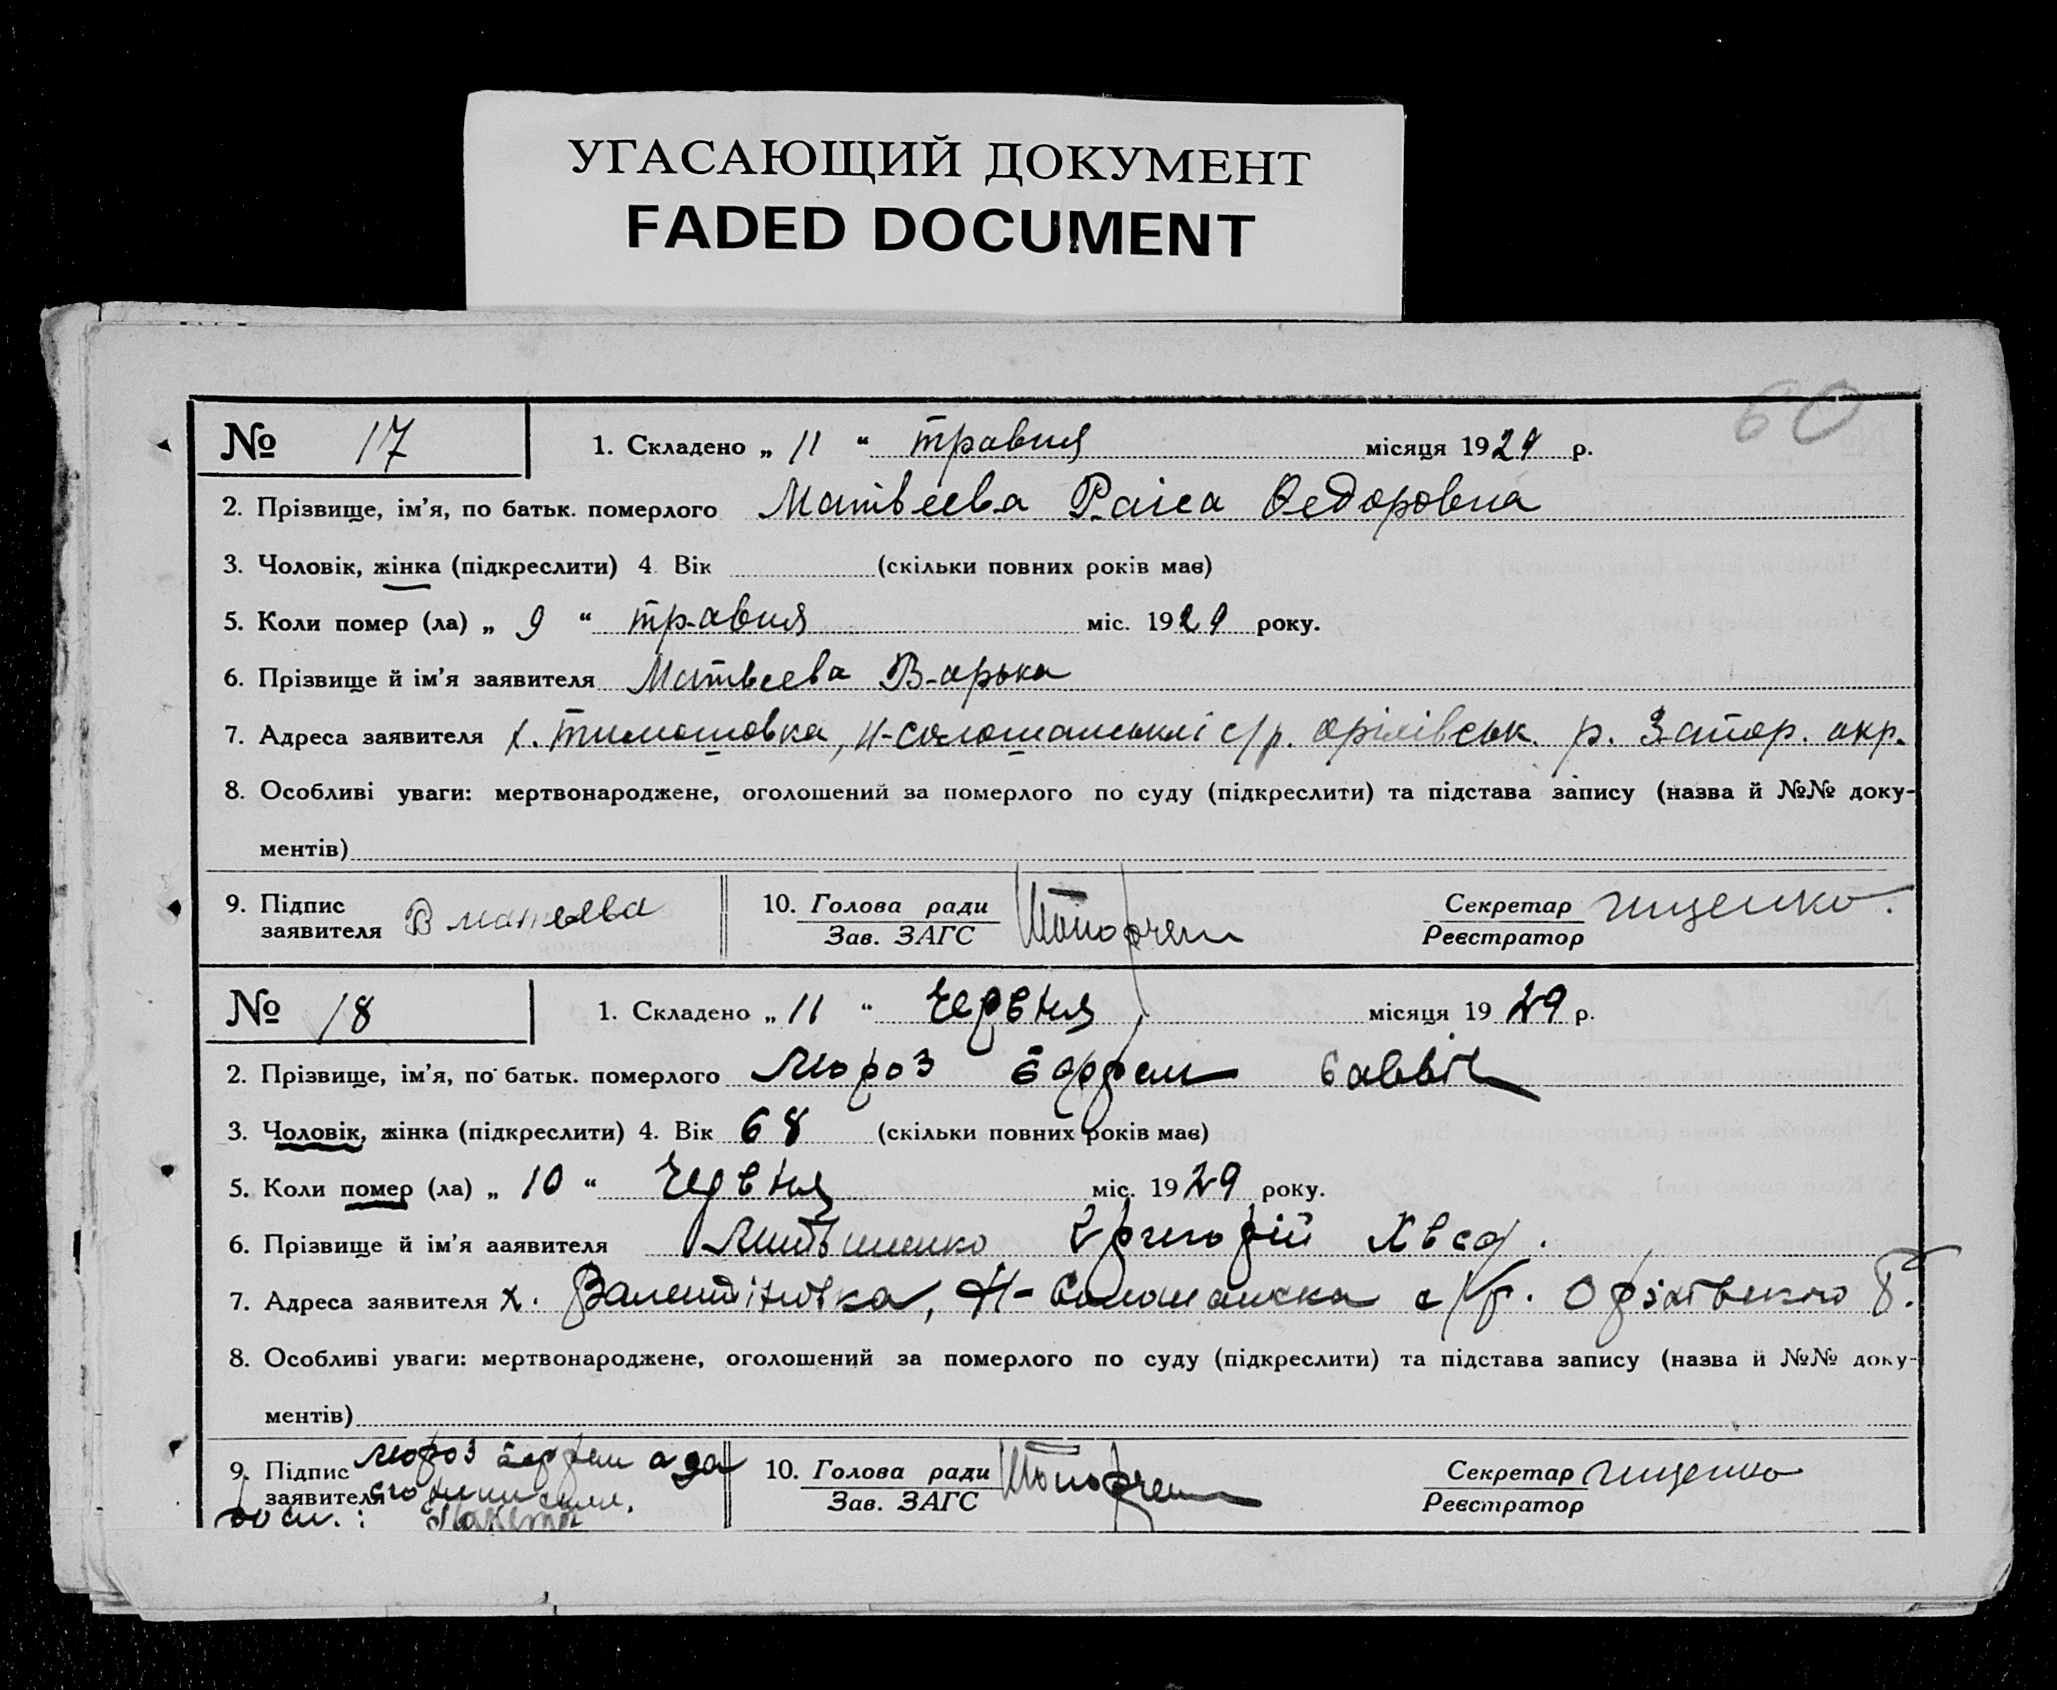 УГАСАЮЩИЙ ДОКУМЕНТ
FADED DOCUMENT
60
№ 17 1. Складено „ 11 “ травня місяця 1929 р.
2. Прізвище, ім’я, по батьк. померлого Матвеева Раіса Федоровна
3. Чоловік, жінка (підкреслити) 4. Вік (скільки повних років має)
5. Коли помер (ла) „ 9 “ травня міс. 1929 року.
6. Прізвище й ім’я заявителя Матвеева Варька
7. Адреса заявителя х. Тимошовка, Н- с/р. Оріхівськ. р. Запор. окр.
8. Особливі уваги: мертвонароджене, оголошений за померлого по суду (підкреслити) та підстава запису (назва й №№ доку-
ментів)
9. Підпис заявителя В Матвева 10. Голова ради Зав. ЗАГС Секретар Реєстратор Гищенко.
№ 18 1. Складено „ 11 “ Червня місяця 1929 р.
2. Прізвище, ім’я, по батьк. померлого Мороз Єфрем Саввич
3. Чоловік, жінка (підкреслити) 4. Вік 68 (скільки повних років має)
5. Коли помер (ла) „ 10 “ Червня міс. 1929 року.
6. Прізвище й ім’я заявителя Григорій
7. Адреса заявителя х. , Н- с/р. р.
8. Особливі уваги: мертвонароджене, оголошений за померлого по суду (підкреслити) та підстава запису (назва й №№ доку-
ментів)
9. Підпис заявителя Мороз Єфрем 10. Голова ради Зав. ЗАГС Секретар Реєстратор Гищенко